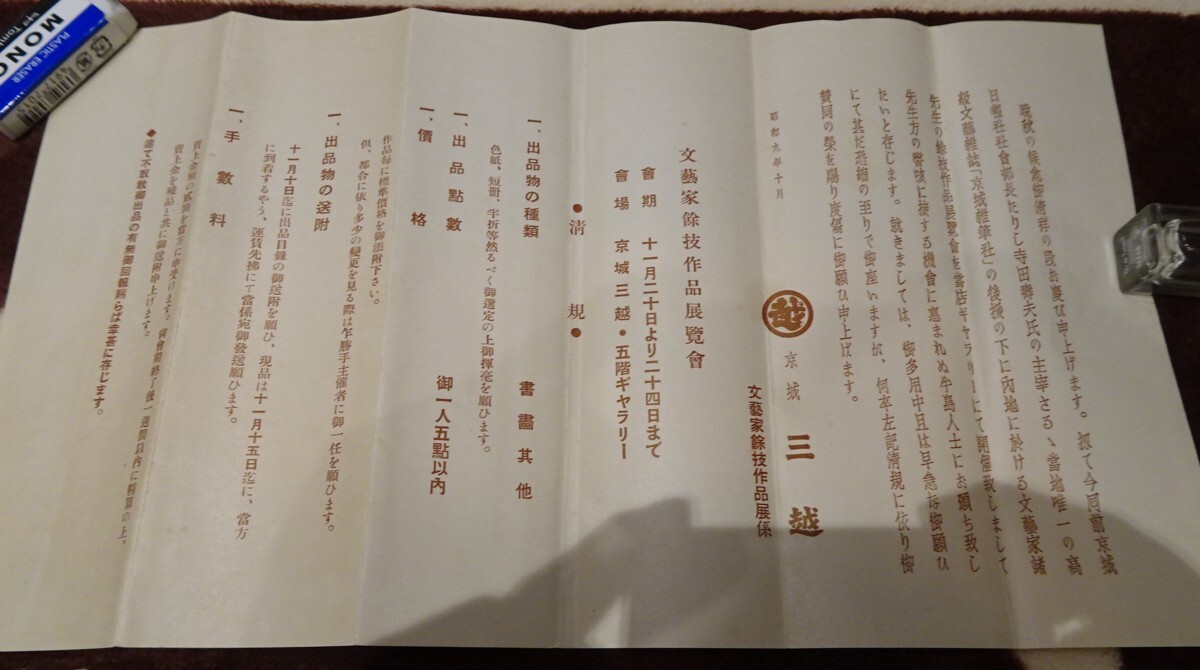 晩秋の候愈御清祥の段お慶び申上げます。扨て今囘前京城
日報社社會部長たりし寺田壽夫氏の主宰さるゝ當地唯一の高
級文藝雜誌「京城雜筆社」の後援の下に内地に於ける文藝家諸
先生の餘技作品展覽會を當店ギャラリーにて開催致しまして
先生方の謦咳に接する機會に惠まれぬ半島人士にお頒ち致し
たいと存じます。就きましては、御多用中且は早急な御願ひ
にて甚だ恐縮の至りで御座いますが、何卒左記清規に依り御
賛同の榮を賜り度偏に御願ひ申上げます。
昭和九年十月
越 京城 三越
文藝家餘技作品展係
文藝家餘技作品展覽會
會期 十一月二十日より二十四日まで
會場 京城三越・五階ギャラリー
●清規●
一、出品物の種類 書畵其他
色紙、短册、半折等然るべく御選定の上御揮毫を願ひます。
一、出品點數 御一人五點以内
一、價格
作品毎に標準價格を御添附下さい。
但、都合に依り多少の變更を見る際は乍勝手主催者に御一任を願ひます。
一、出品物の送附
十一月十日迄に出品目錄の御送附を願ひ、現品は十一月十五日迄に、當方
に到着するやう、運賃先拂にて當係宛御發送願ひます。
一、手數料
賣上金額の貳割を當方に申受けます。尚會期終了後一週間以内に精算の上、
賣上金を殘品と共に御送附申上げます。
●追て不取敢御出品の有無御囘報賜らば幸甚に存じます。
MONO
PLASTIC ERASER
Tombo